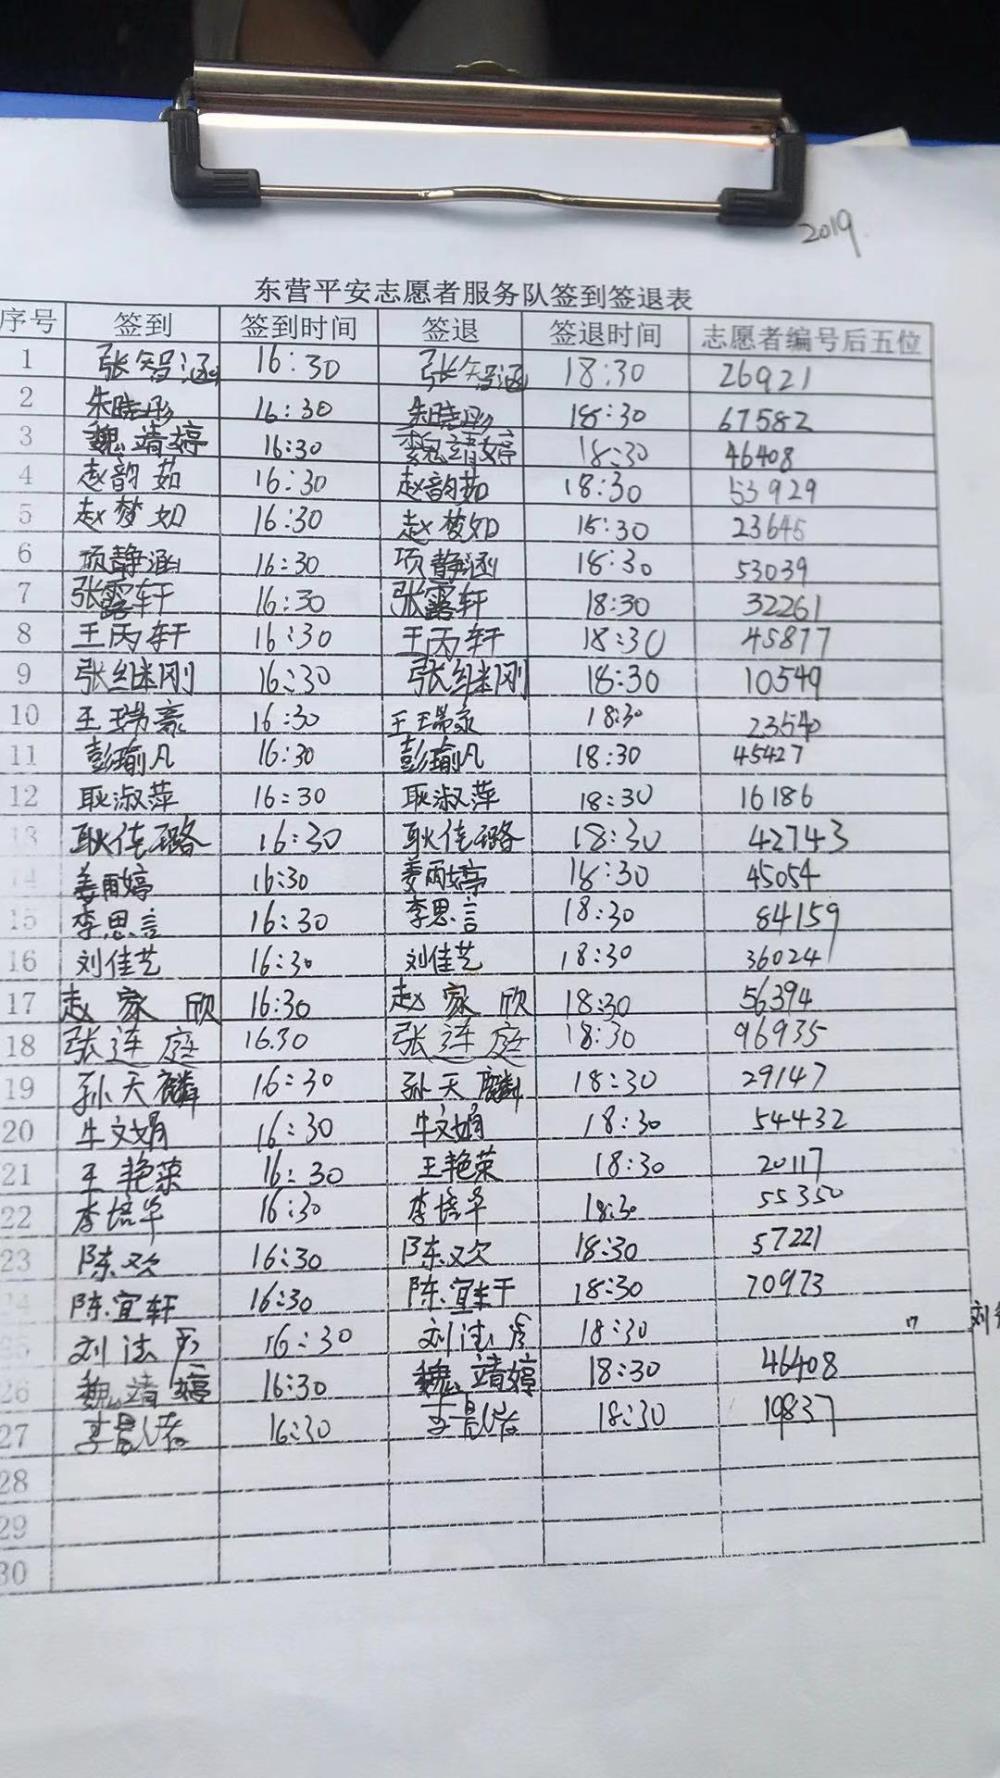 2019
东营平安志愿者服务队签到签退表
序号 签到 签到时间 签退 签退时间 志愿者编号后五位
1 张智涵 16:30 张智涵 18:30 26921
2 朱晓彤 16:30 朱晓彤 18:30 67582
3 魏靖婷 16:30 魏靖婷 18:30 46408
4 赵韵茹 16:30 赵韵茹 18:30 53929
5 赵梦如 16:30 赵梦如 18:30 23645
6 项静涵 16:30 项静涵 18:30 53039
7 张露轩 16:30 张露轩 18:30 32261
8 王丙轩 16:30 王丙轩 18:30 45877
9 张继刚 16:30 张继刚 18:30 10549
10 王瑞豪 16:30 王瑞豪 18:30 23540
11 彭瑜凡 16:30 彭瑜凡 18:30 45427
12 耿淑萍 16:30 耿淑萍 18:30 16186
13 耿佳璐 16:30 耿佳璐 18:30 42743
14 姜雨婷 16:30 姜雨婷 18:30 45054
15 李思言 16:30 李思言 18:30 84159
16 刘佳艺 16:30 刘佳艺 18:30 36024
17 赵家欣 16:30 赵家欣 18:30 56394
18 张连庭 16.30 张连庭 18:30 96935
19 孙天麟 16:30 孙天麟 18:30 29147
20 牛文娟 16:30 牛文娟 18:30 54432
21 王艳荣 16:30 王艳荣 18:30 20117
22 李培华 16:30 李培华 18:30 55350
23 陈欢 16:30 陈欢 18:30 57221
24 陈宜轩 16:30 陈宜轩 18:30 70973
25 刘法 16:30 刘法 18:30 刘
26 魏靖婷 16:30 魏靖婷 18:30 46408
27 李 16:30 李 18:30 19837
28
29
30